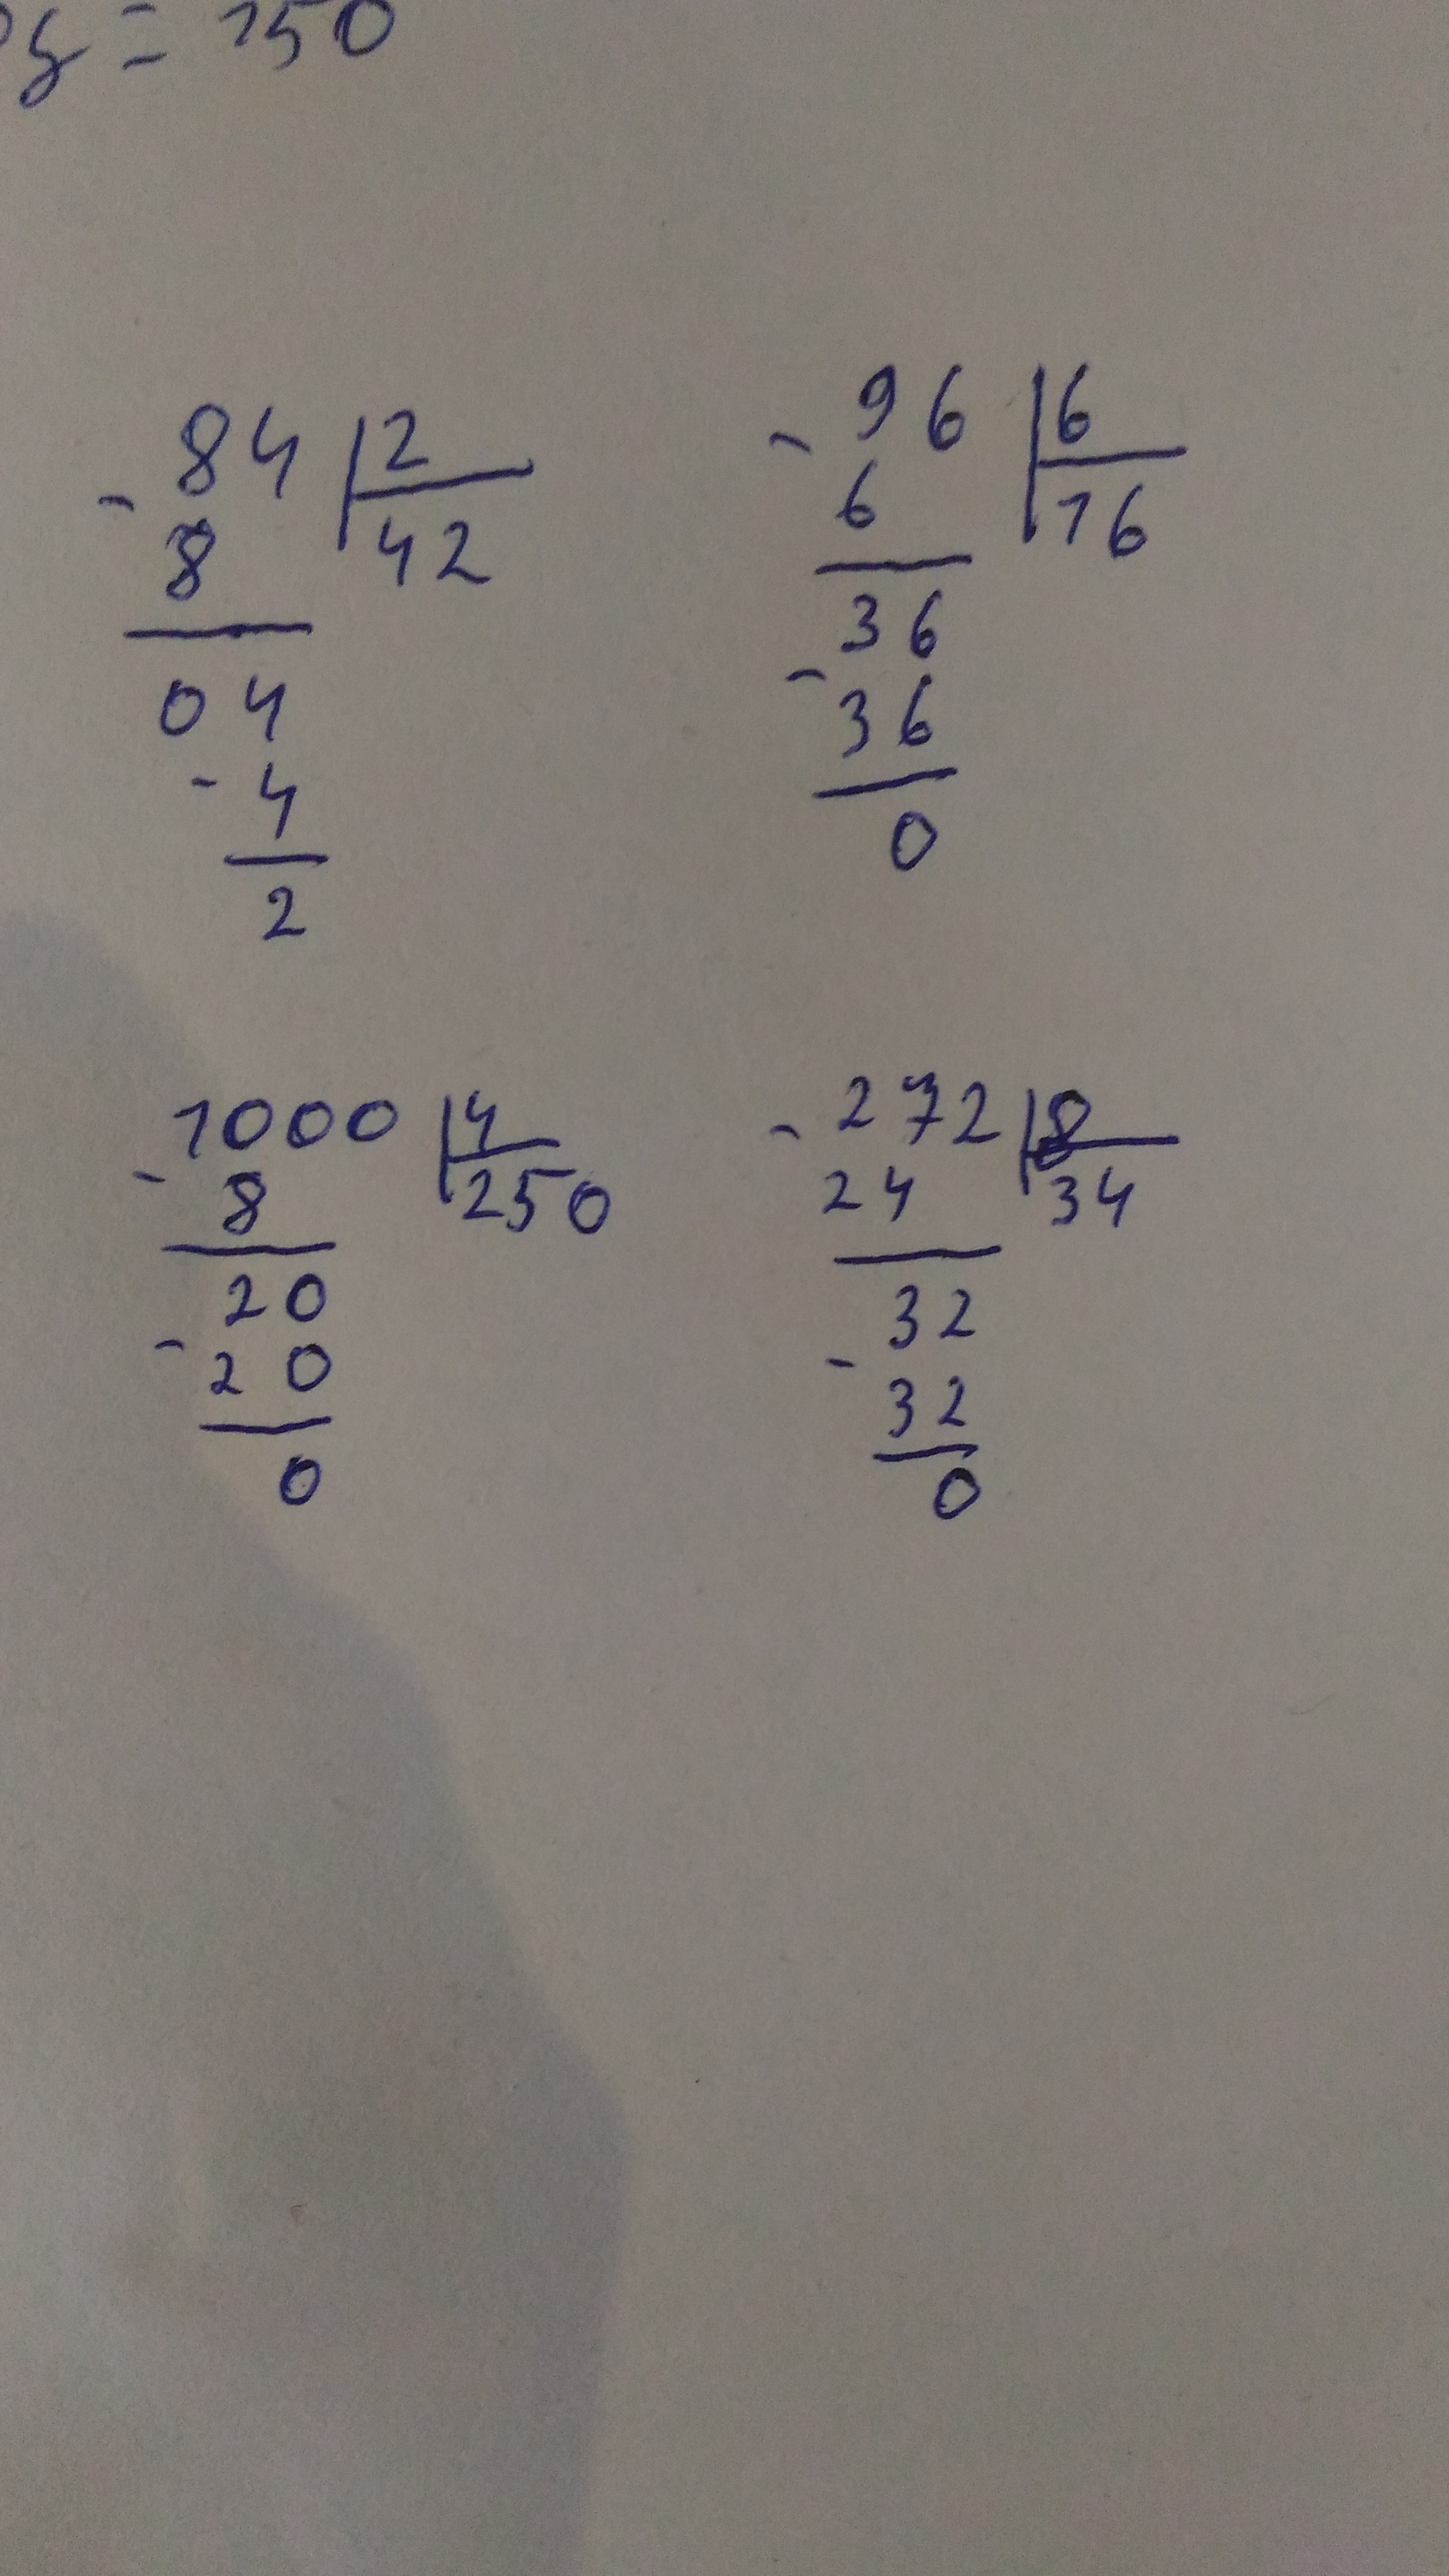 y = 150
84 2
- 8 42
04
- 4
2
96 6
- 6 16
36
- 36
0
1000 4
- 8 250
20
- 20
0
- 272 8
24 34
32
- 32
0